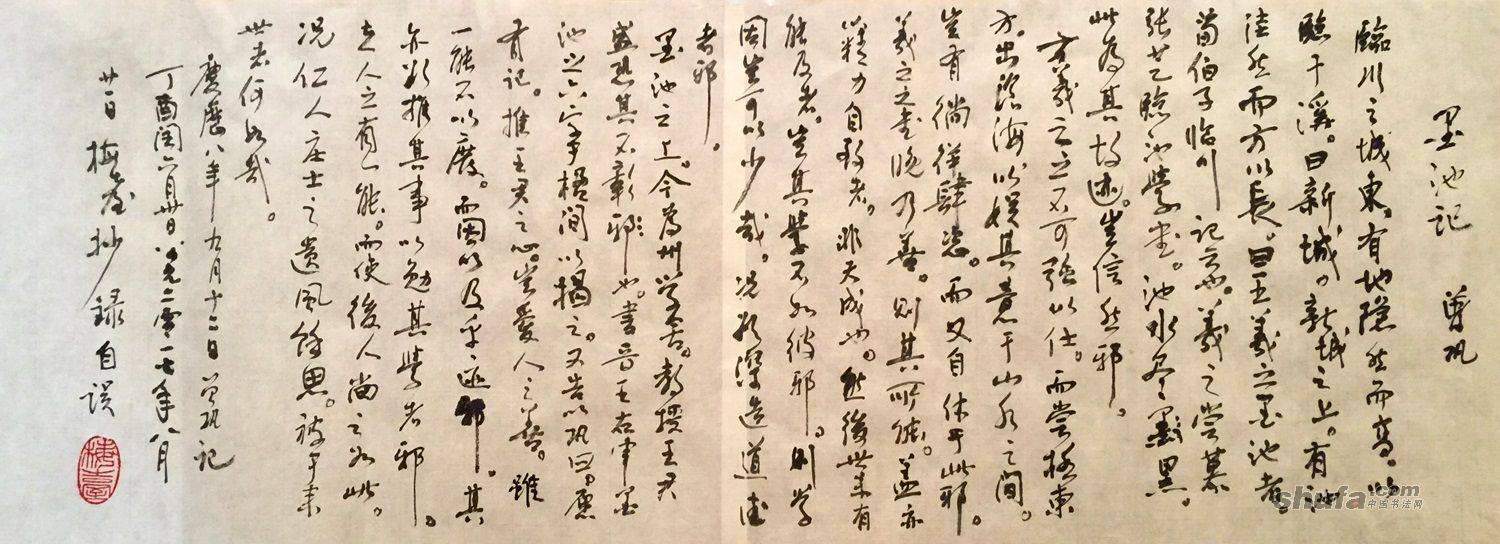 墨池记 曾巩
臨川之城東。有地隐然而高。以
臨于溪。曰新城。新城之上。有池
洼然而方以長。曰王羲之墨池者
荀伯子临川记云也。羲之嘗慕
张芝臨池學书。池水尽墨黑。
此为其故迹。豈信然邪。
方羲之之不可强以仕。而嘗极東
方。出滄海以娱其意于山水之间。
豈有徜徉肆恣。而又自休于此邪。
羲之之书晚乃善。则其所能。盖亦
以精力自致者。非天成也。然後世未有
能及者。豈其學不如彼邪。则学
固岂可以少哉。况欲深造道德
者邪。
墨池之上。今为州学舍。教授王君
盛恐其不彰邪也。书晋王右軍墨
池之六字楹间以揭之。又告以巩曰。愿
有记。推王君之心。豈愛人之善。雖
一能不以廢。而因以及乎迹邪。其
亦欲推其事以勉其學者邪。
夫人之有一能。而使後人尚之如此。
况仁人庄士之遺風餘思。被于来
世者何如哉。
慶曆八年九月十二日 曾巩记
丁酉闰六月卅日公元二零一七年八月
廿一日 梅 抄錄自误
shufa.com
中国书法网